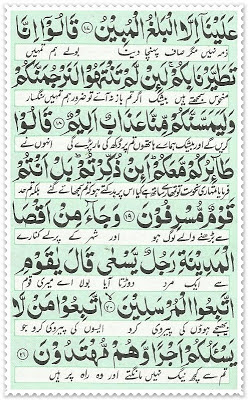 عَلَيْنَاۤ اِلَّا الْبَلٰغُ الْمُبِيْنُ ﴿۱۷﴾ قَالُوْۤا اِنَّا
ذمہ نہیں مگر صاف پہنچا دینا بولے ہم تمہیں
تَطَيَّرْنَا بِكُمْ لَئِنْ لَّمْ تَنْتَهُوْا لَنَرْجُمَنَّكُمْ
منحوس سمجھتے ہیں بیشک اگر تم باز نہ آئے تو ضرور ہم تمہیں سنگسار
وَلَيَمَسَّنَّكُمْ مِّنَّا عَذَابٌ اَلِيْمٌ ﴿۱۸﴾ قَالُوْا
کریں گے اور بیشک ہمارے ہاتھوں تم پر دکھ کی مار پڑے گی انہوں نے
طَآئِرُكُمْ مَّعَكُمْ اَئِنْ ذُكِّرْتُمْ بَلْ اَنْتُمْ
فرمایا تمہاری نحوست تو تمہارے ساتھ ہے کیا اس پر بدکتے ہو کہ تم سمجھائے گئے بلکہ تم حد
قَوْمٌ مُّسْرِفُوْنَ ﴿۱۹﴾ وَجَآءَ مِنْ اَقْصَا
سے بڑھنے والے لوگ ہو اور شہر کے پرلے کنارے
الْمَدِيْنَةِ رَجُلٌ يَّسْعٰى قَالَ يٰقَوْمِ
سے ایک مرد دوڑتا آیا بولا اے میری قوم
اتَّبِعُوا الْمُرْسَلِيْنَ ﴿۲۰﴾ اتَّبِعُوْا مَنْ لَّا
بھیجے ہوؤں کی پیروی کرو ایسوں کی پیروی کرو جو
يَسْـَٔلُكُمْ اَجْرًا وَّهُمْ مُّهْتَدُوْنَ ﴿۲۱﴾
تم سے کچھ نیگ نہیں مانگتے اور وہ راہ پر ہیں